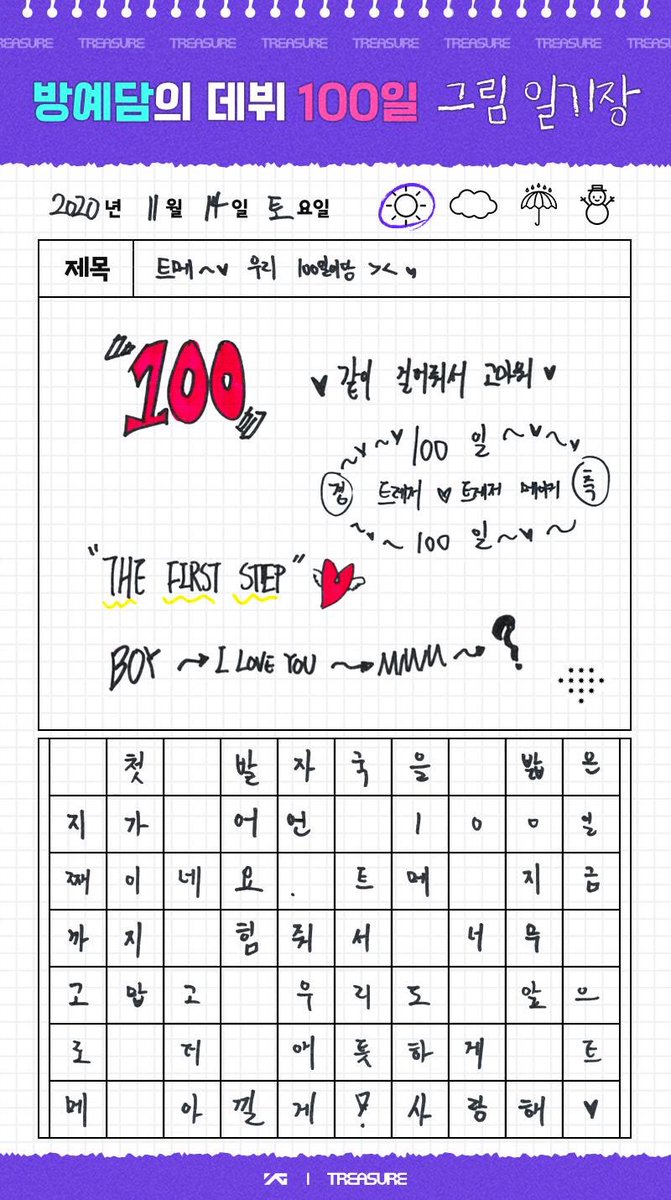 TREASURE TREASURE TREASURE TREASURE TREASURE TREASURE TREASURE TREASURE
방예담의 데뷔 100일 그림 일기장
2020년 11월 14일 토요일
제목 트메~♥ 우리 100일이담 ><
100
♥ 같이 걸어줘서 고마워 ♥
~♥~♥ 100 일 ~♥~♥
경 트레저 ♥ 트레저 메이커 축
~♥~ 100 일 ~♥~
"THE FIRST STEP"
BOY → I LOVE YOU → MMM → ?
첫 발자국을 밟은
지가 어언 100일
째이네요. 트메 지금
까지 힘줘서 너무
고맙고 우리도 앞으
로 더 애틋하게 트
메 아낄게! 사랑해♥
YG | TREASURE